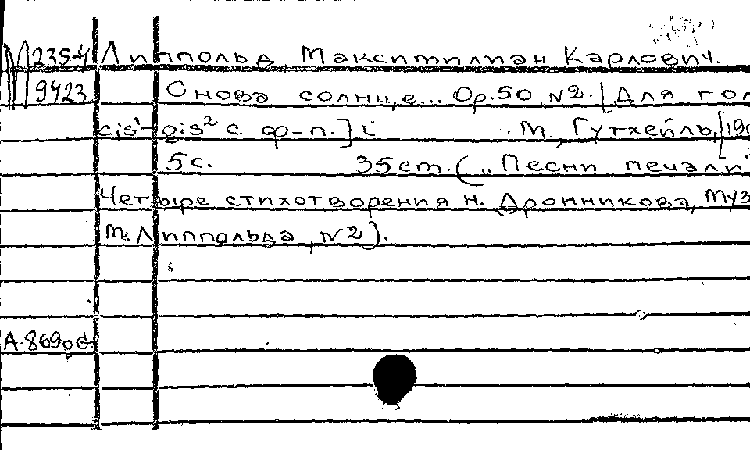 М 235-4 Липпольд, Максимилиан Карлович.
9423 Снова солнце... Op. 50, N2. [Для гол
cis¹-gis² с ф-п.] М., Гутхейль, [190
5 с. 35 cm. („Песни печали"
Четыре стихотворения Н. Дронникова, муз
М. Липпольда, N2).
А. 869